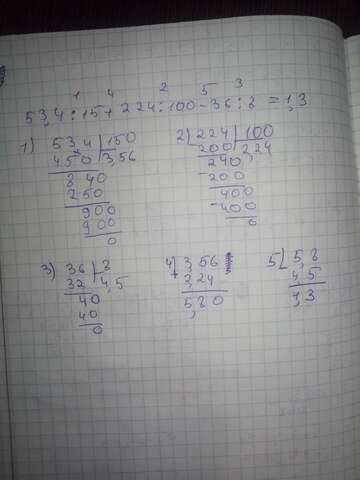 1 4 2 5 3
53,4 : 15 + 224 : 100 - 36 : 8 = 1,3
1) 534 | 150 2) 224 | 100
450 3,56 200 2,24
840 240
750 200
900 400
900 400
0 0
3) 36 | 8 4) 3,56 5) 5,8
32 4,5 + 2,24 - 4,5
40 5,80 1,3
40
0